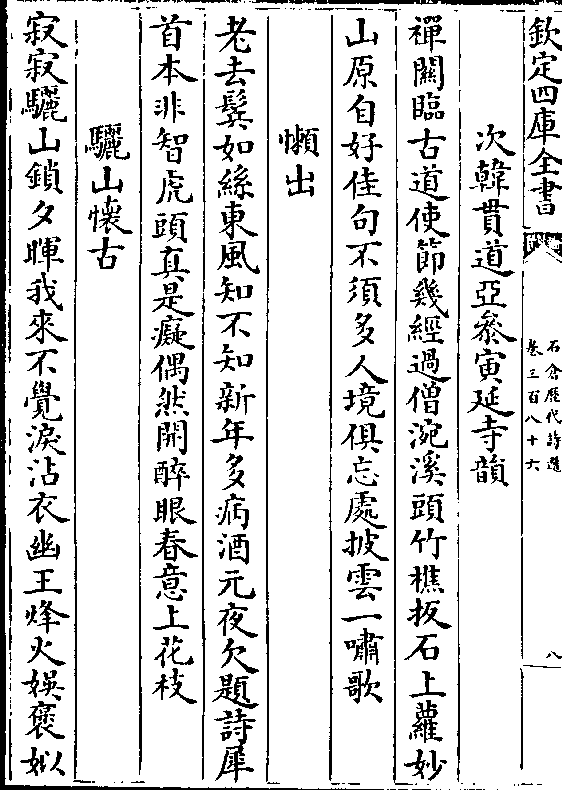 欽定四庫全書
石倉歷代詩選
卷三百八十六
八
次韓貫道亞參寅延寺韻
禪關臨古道使節幾經過僧㴠溪頭竹樵扳石上蘿妙
山原自好佳句不須多人境俱忘處披雲一嘯歌
懶出
老去鬂如絲東風知不知新年多病酒元夜欠題詩犀
首本非智虎頭真是癡偶然開醉眼春意上花枝
驪山懷古
寂寂驪山鎖夕暉我來不覺淚沾衣幽王烽火娛褒姒